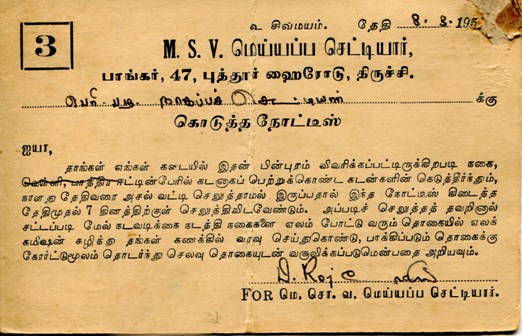 3
உ சிவமயம். தேதி 8. 8. 195
M. S. V. மெய்யப்ப செட்டியார்,
பாங்கர், 47, புத்தூர் ஹைரோடு, திருச்சி.
க்கு
கொடுத்த நோட்டீஸ்
ஐயா,
தாங்கள் எங்கள் கடையில் இதன் பின்புரம் விவரிக்கப்பட்டிருக்கிறபடி நகை,
வெள்ளி, பாத்திர ஈட்டின்பேரில் கடனாகப் பெற்றுக்கொண்ட கடன்களின் கெடுதீர்ந்தும்,
நாளது தேதிவரை அசல் வட்டி செலுத்தாமல் இருப்பதால் இந்த நோட்டீஸ் கிடைத்த
தேதிமுதல் 7 தினத்திற்குள் செலுத்திவிடவேண்டும். அப்படிச் செலுத்தத் தவறினால்
சட்டப்படி மேல் நடவடிக்கை நடத்தி நகைகளை ஏலம் போட்டு வரும் தொகையில் ஏலக்
கமிஷன் கழித்து தங்கள் கணக்கில் வரவு செய்துகொண்டு, பாக்கிப்படும் தொகைக்கு
கோர்ட்டுமூலம் தொடர்ந்து செலவு தொகையுடன் வசூலிக்கப்படுமென்பதை அறியவும்.
FOR மெ. சொ. வ. மெய்யப்ப செட்டியார்.